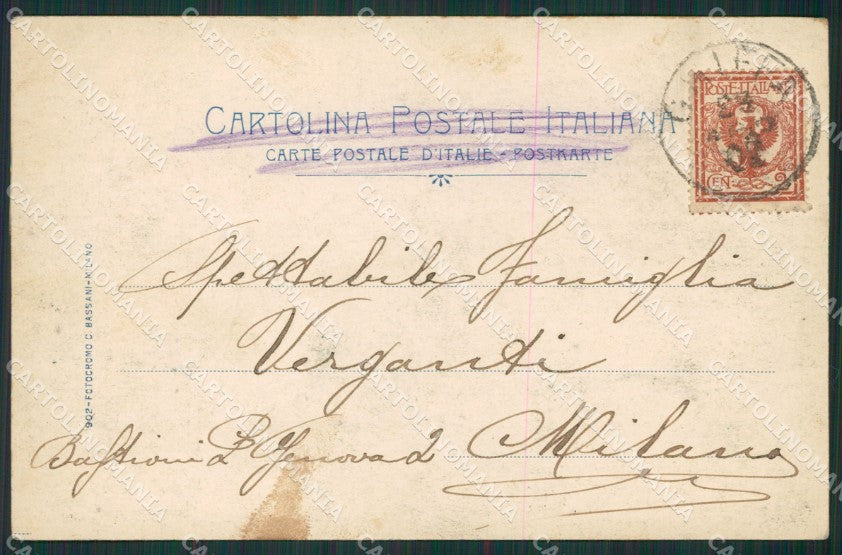 CARTOLINA POSTALE ITALIANA
CARTE POSTALE D'ITALIE - POSTKARTE
POSTE ITALIANE
Spettabile Famiglia
Verganti
Bastioni P. Genova 2 Milano
902-FOTOCROMO C. BASSANI-MILANO
CARTOLINOMANIA